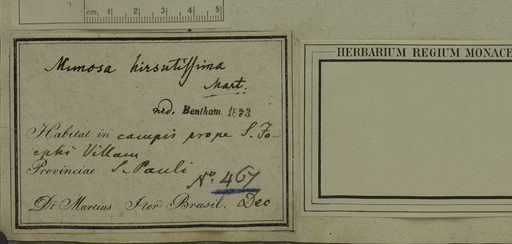 cm. 1 2 3 4 5
HERBARIUM REGIUM MONACE
Mimosa hirsutissima
Mart.
red. Bentham. 1873
Habitat in campis prope S. Jo-
sephi Villam
Provinciae S. Pauli
No. 467
Dr Martius Iter Brasil. Dec